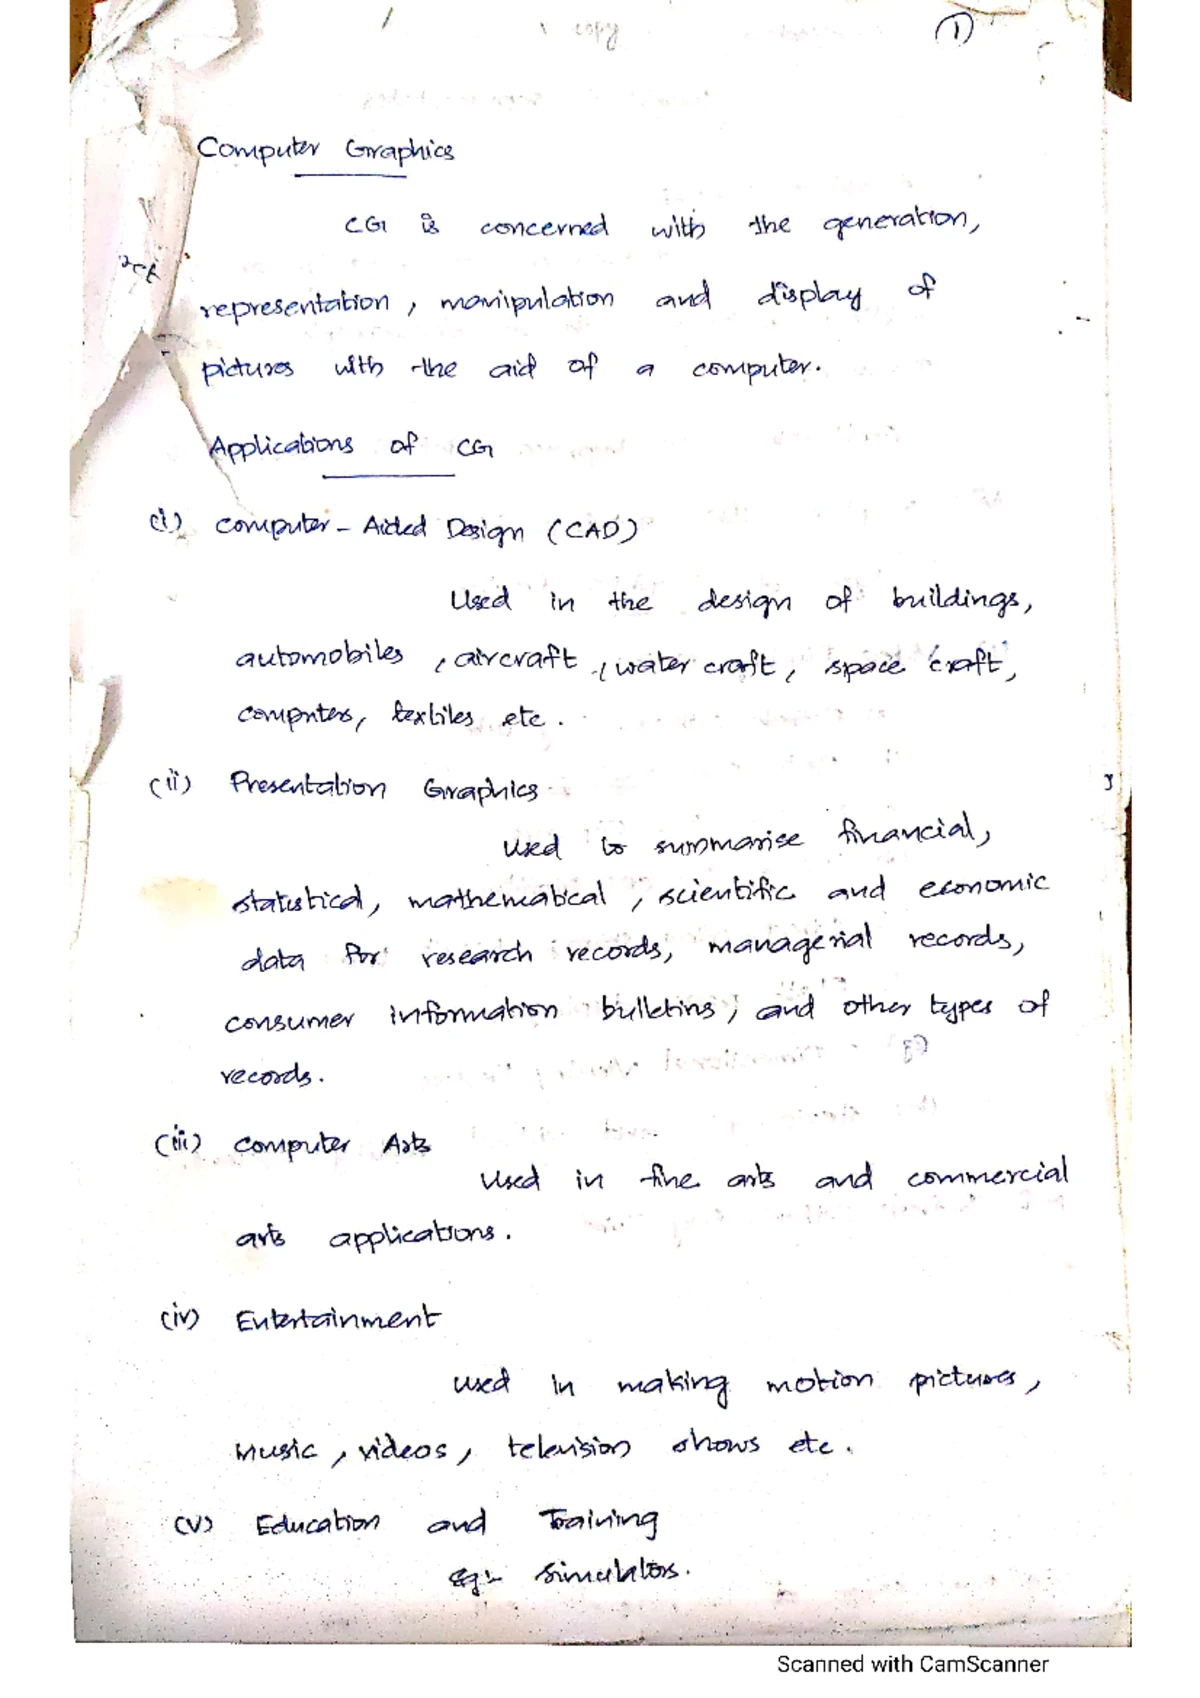 1
Computer Graphics
CG is concerned with the generation,
representation, manipulation and display of
pictures with the aid of a computer.
Applications of CG
(i) Computer-Aided Design (CAD)
Used in the design of buildings,
automobiles, aircraft, water craft, space craft,
computers, textiles etc.
(ii) Presentation Graphics
Used to summarise financial,
statistical, mathematical, scientific and economic
data for research records, managerial records,
consumer information bulletins, and other types of
records.
(iii) Computer Arts
Used in fine arts and commercial
arts applications.
(iv) Entertainment
Used in making motion pictures,
Music, videos, television shows etc.
(v) Education and Training
Eg:- Simulators.
Scanned with CamScanner